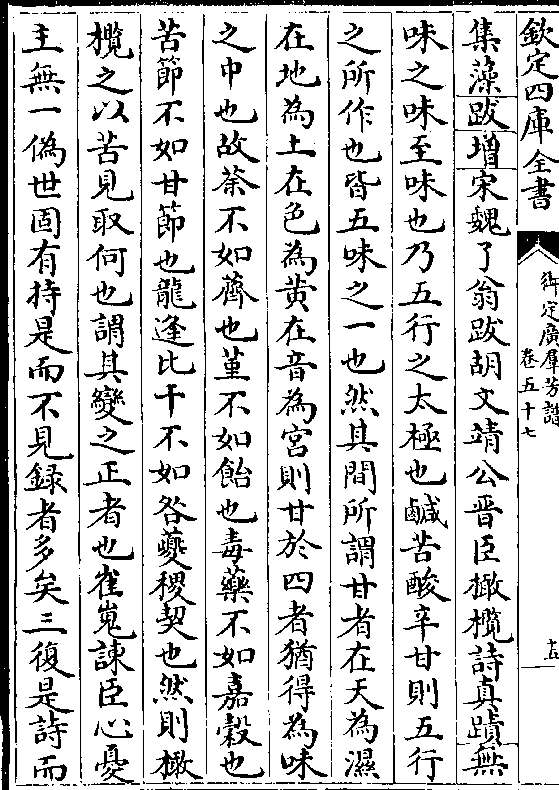 欽定四庫全書
御定廣羣芳譜
卷五十七
十五
集藻跋增宋魏了翁跋胡文靖公晋臣橄欖詩真蹟無
味之味至味也乃五行之太極也鹹苦酸辛甘則五行
之所作也皆五味之一也然其間所謂甘者在天為濕
在地為土在色為黄在音為宮則甘於四者猶得為味
之中也故荼不如薺也堇不如飴也毒藥不如嘉穀也
苦節不如甘節也龍逢比干不如咎夔稷契也然則橄
欖之以苦見取何也謂其變之正者也崔嵬諫臣心憂
主無一偽世固有持是而不見録者多矣三復是詩而